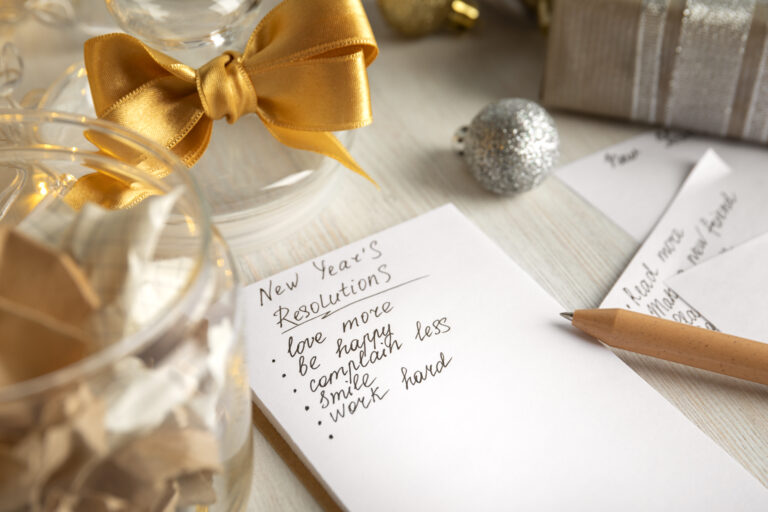 New Year's
Resolutions
• love more
• be happy
• complain less
• smile
• work hard
•
New
Read more
new friend